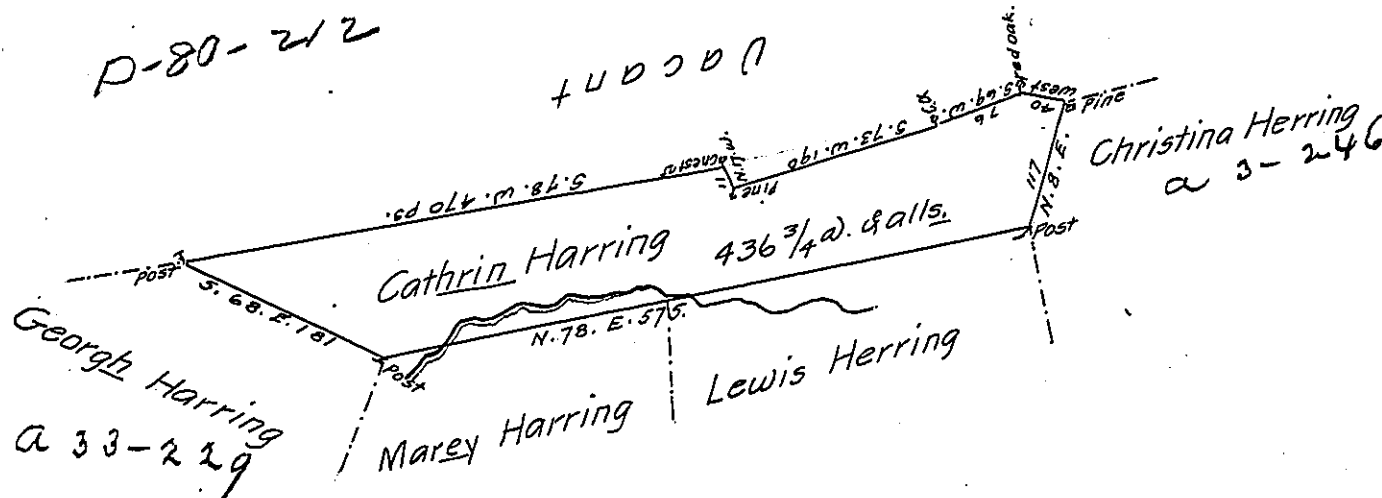 D-80-212
Vacant
red oak.
West
70
Pine
S.69.W.
76
S.73.W. 190
Pine
11
chestnut
S.78.W. 470 ps.
Christina Herring
a 3-246
117
N.8.E.
Post
Cathrin Harring
436 3/4 a. & alls.
Post
S. 68. E. 181
N.78. E. 575.
Post
Georgh Harring
a 33-229
Marey Harring
Lewis Herring